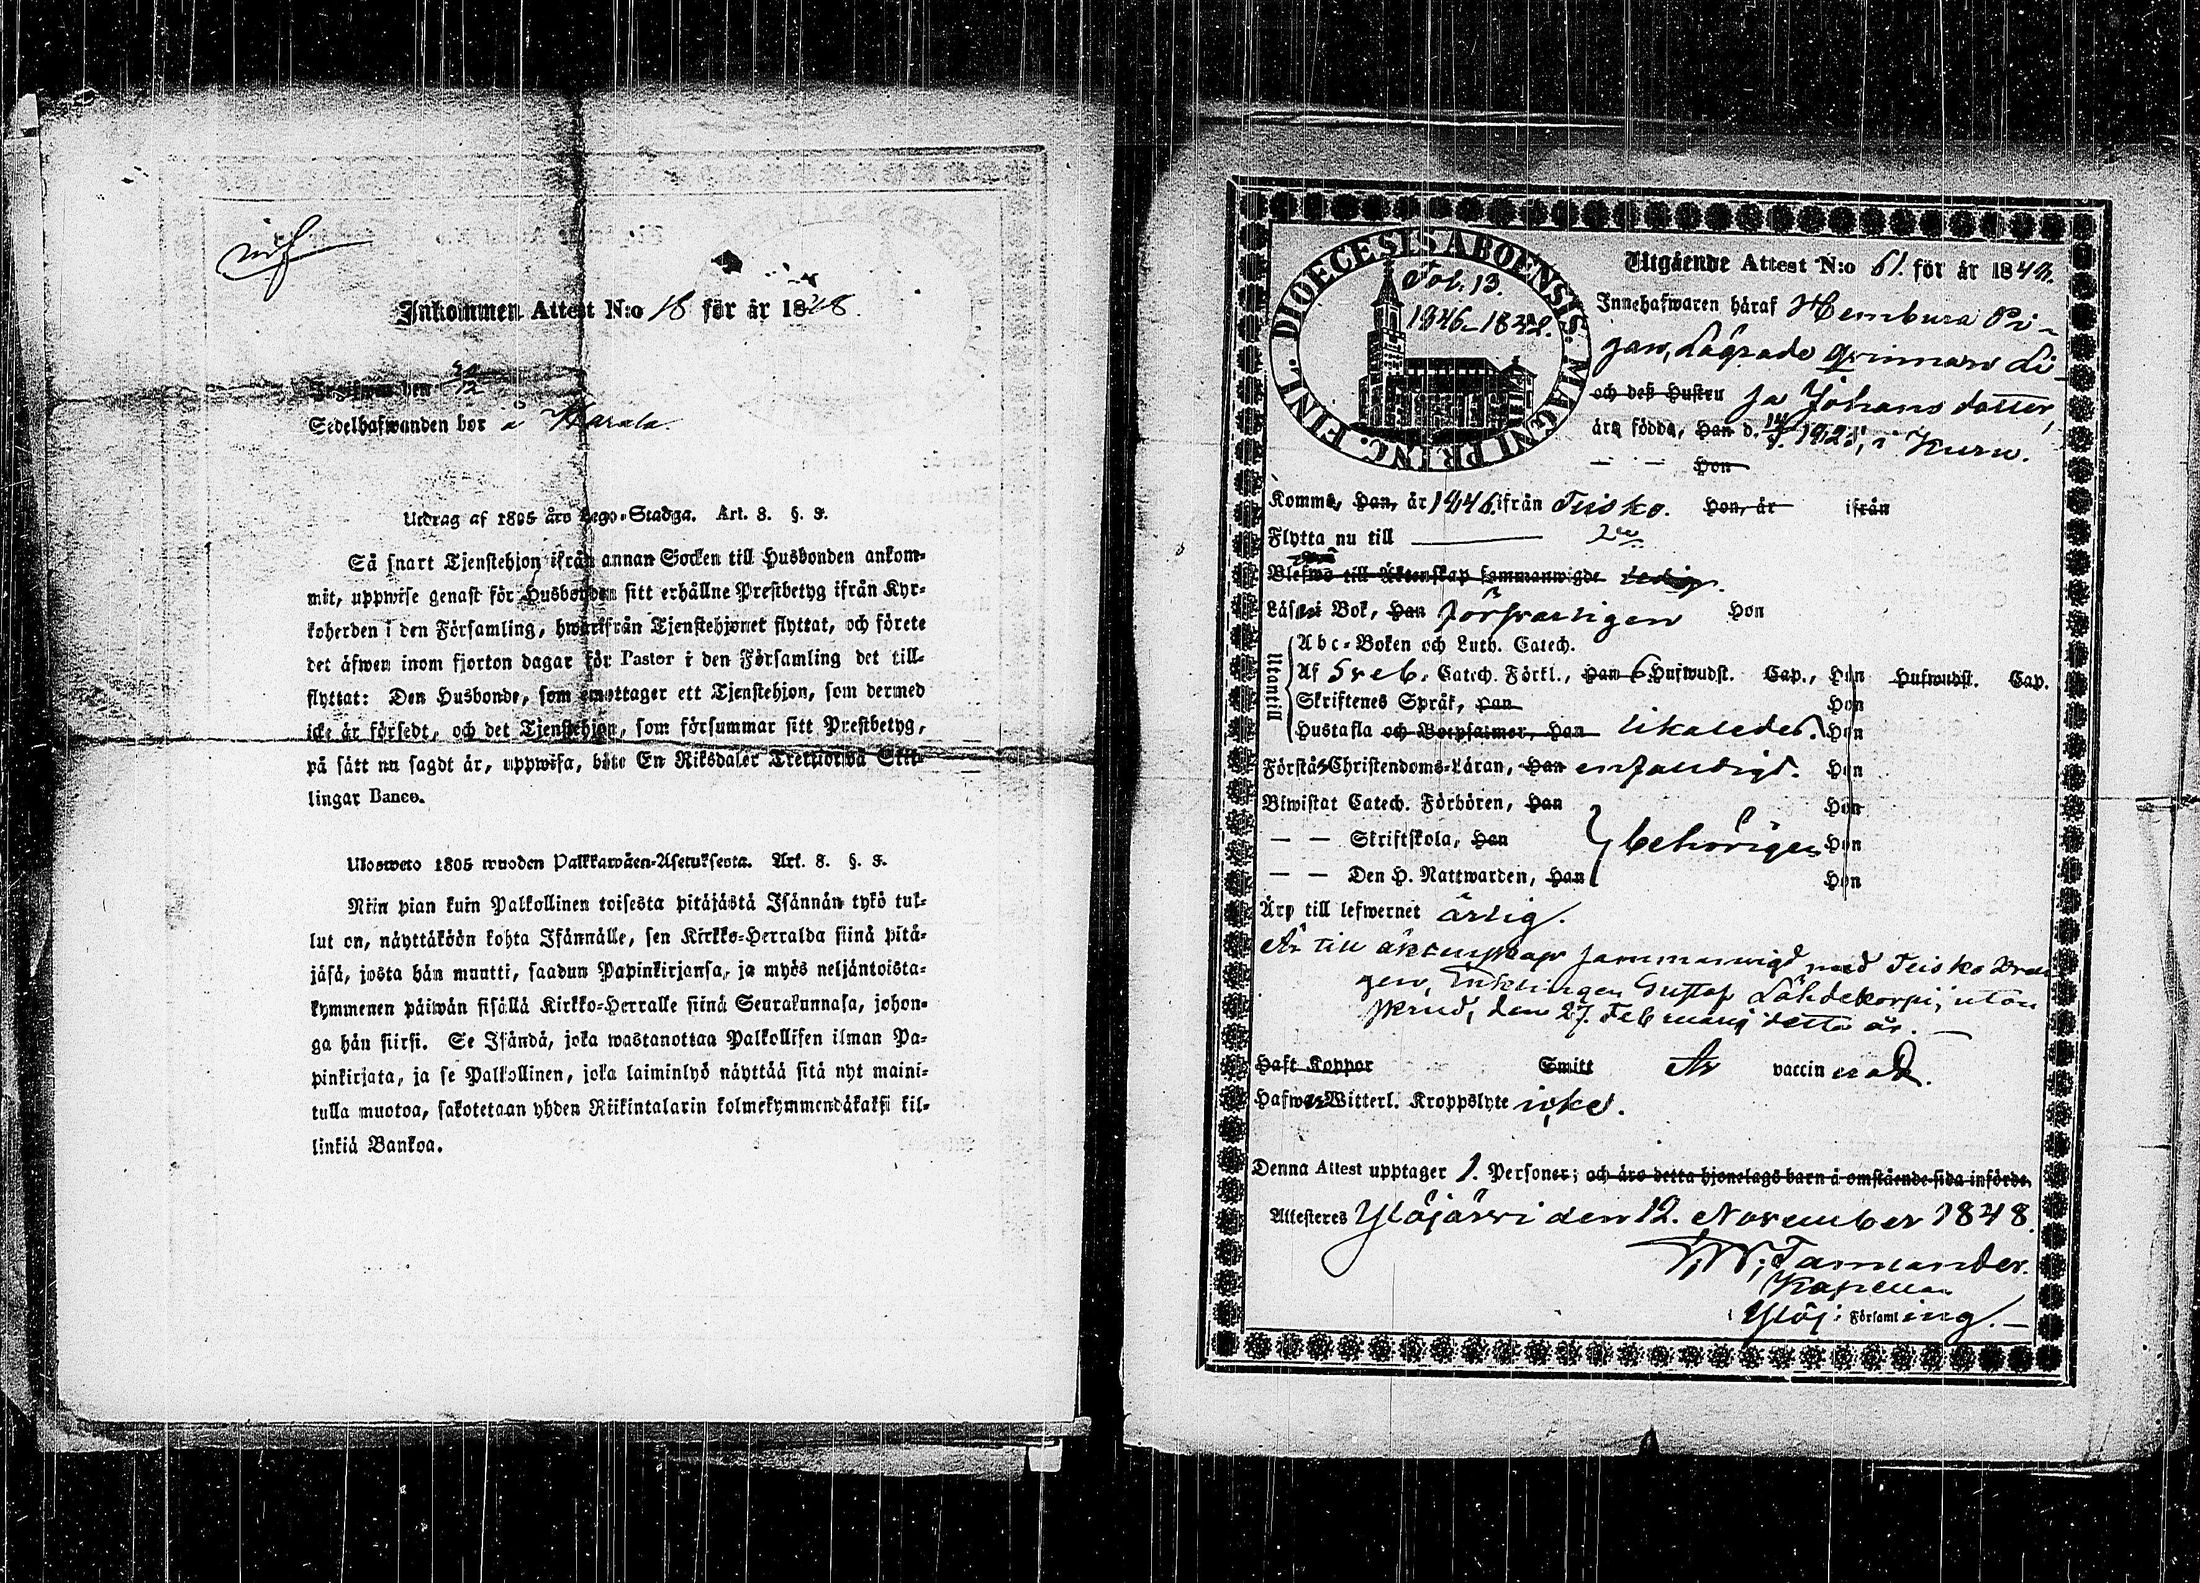 Inkommen Attest N:o 18 för år 1848.
Ingifwen den 30/12
Sedelhafwanden bor i Karala.
Utdrag af 1805 års Lego-Stadga. Art. 3. §. 3.
Så snart Tjenstehjon ifrån annan Socken till Husbonden ankom-
mit, uppwise genast för Husbonden sitt erhållne Prestbetyg ifrån Kyr-
koherden i den Församling, hwarifrån Tjenstehjonet flyttat, och förete
det äfwen inom fjorton dagar för Pastor i den Församling det till-
flyttat: Den Husbonde, som emottager ett Tjenstehjon, som dermed
icke är försedt, och det Tjenstehjon, som försummar sitt Prestbetyg,
på sätt nu sagdt är, uppwisa, böte En Riksdaler Trettiotwå Skil-
lingar Banco.
Ulosweto 1805 wuoden Palkkawäen-Asetuksesta. Art. 3. §. 3.
Niin pian kuin Palkollinen toisesta pitäjästä Isännän tykö tul-
lut on, näyttäköön kohta Isännälle, sen Kirkko-Herralda siinä pitä-
jäsä, josta hän muutti, saadun Papinkirjansa, ja myös neljäntoista-
kymmenen päiwän sisällä Kirkko-Herralle siinä Seurakunnasa, johon-
ga hän siirsi. Se Isändä, joka wastanottaa Palkollisen ilman Pa-
pinkirjata, ja se Palkollinen, joka laiminlyö näyttää sitä nyt maini-
tulla muotoa, sakotetaan yhden Riikintalarin kolmekymmendäkaksi kil-
linkiä Bankoa.
DIOECESIS ABOENSIS. MAGNI PRINC. FINL.
Fol. 13.
1846-1848.
Utgående Attest N:o 61. för år 1848.
Innehafwaren häraf Hembura Pi-
gan, Lägrade qvinnan Li-
och deß Hustru sa Johansdotter,
äro födda, Han d. 1825, i Kuru.
— — Hon
Komma, Han, år 1846. ifrån Teisko. Hon, år ifrån
Flytta nu till
Blefwo till Äktenskap sammanwigde ledig.
Läsa i Bok, Han försvarligen Hon
Utantill
Abc-Boken och Luth. Catech.
Af Sveb. Catech. Förkl., Han 6 Hufwudst. Cap., Hon Hufwudst. Cap.
Skriftenes Språk, Han Hon
Hustafla och Botpsalmer, Han likaledes. Hon
Förstå Christendoms-Läran, Han enfaldigt. Hon
Biwistat Catech. Förhören, Han Hon
— — Skriftskola, Han behörigen Hon
— — Den H. Nattwarden, Han Hon
Äro till lefwernet ärlig.
Är till äktenskap sammanvigd med Teisko
gen, Enklingen Gustaf Lähdekorpi, utan
skrud, den 27. Februarij detta år.
Haft Koppor Smitt Är vaccinerad.
Hafwa Witterl. Kroppslyte icke.
Denna Attest upptager 1. Personer; och äro detta hjonelags barn å omstående sida införde.
Attesteres Ylöjärvi den 12. November 1848.
Tamlander.
Kapellan
i Ylöj: Församling.